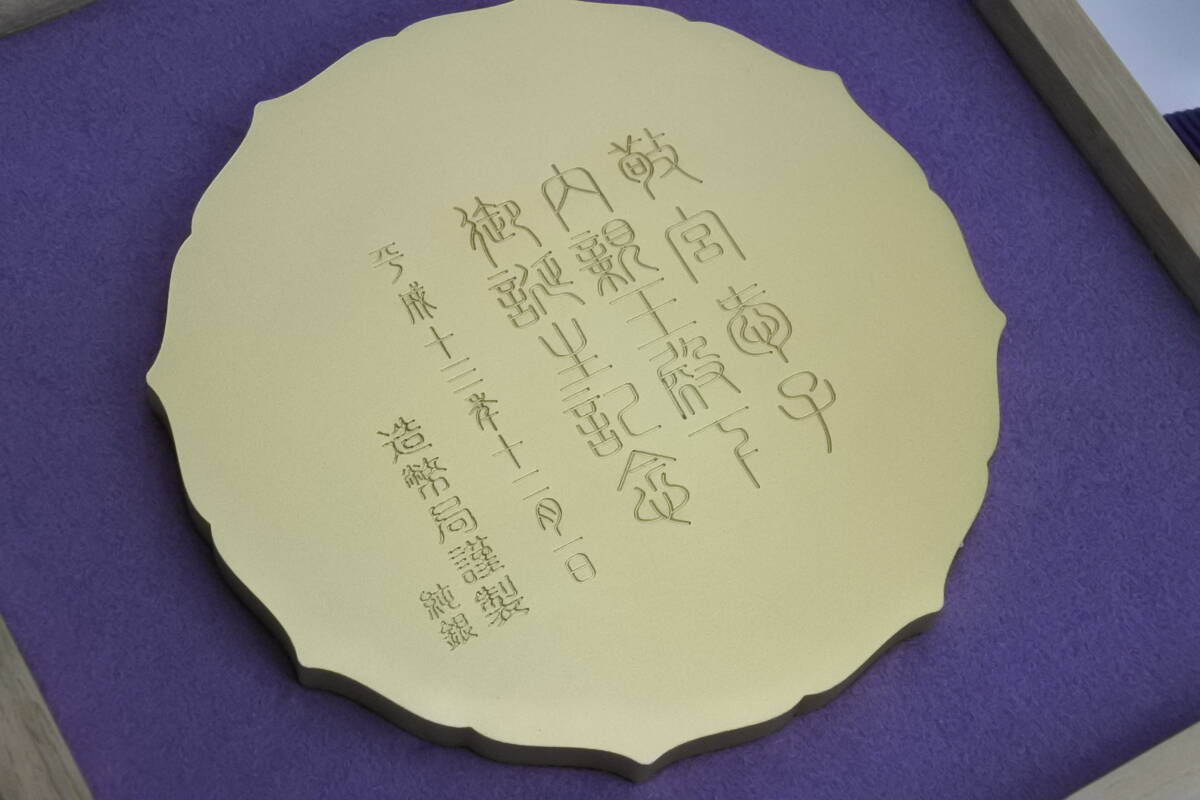 敬宮愛子
内親王殿下
御誕生記念
平成十三年十二月一日
造幣局謹製
純銀